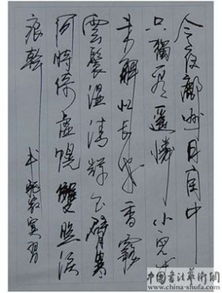 今夜鄜州月闺中
只獨看遥憐小兒女
未解忆长安香霧
雲鬟湿清輝玉臂寒
何時倚虚幌雙照泪
痕乾
中国书法艺术网
www.china-shufa.com